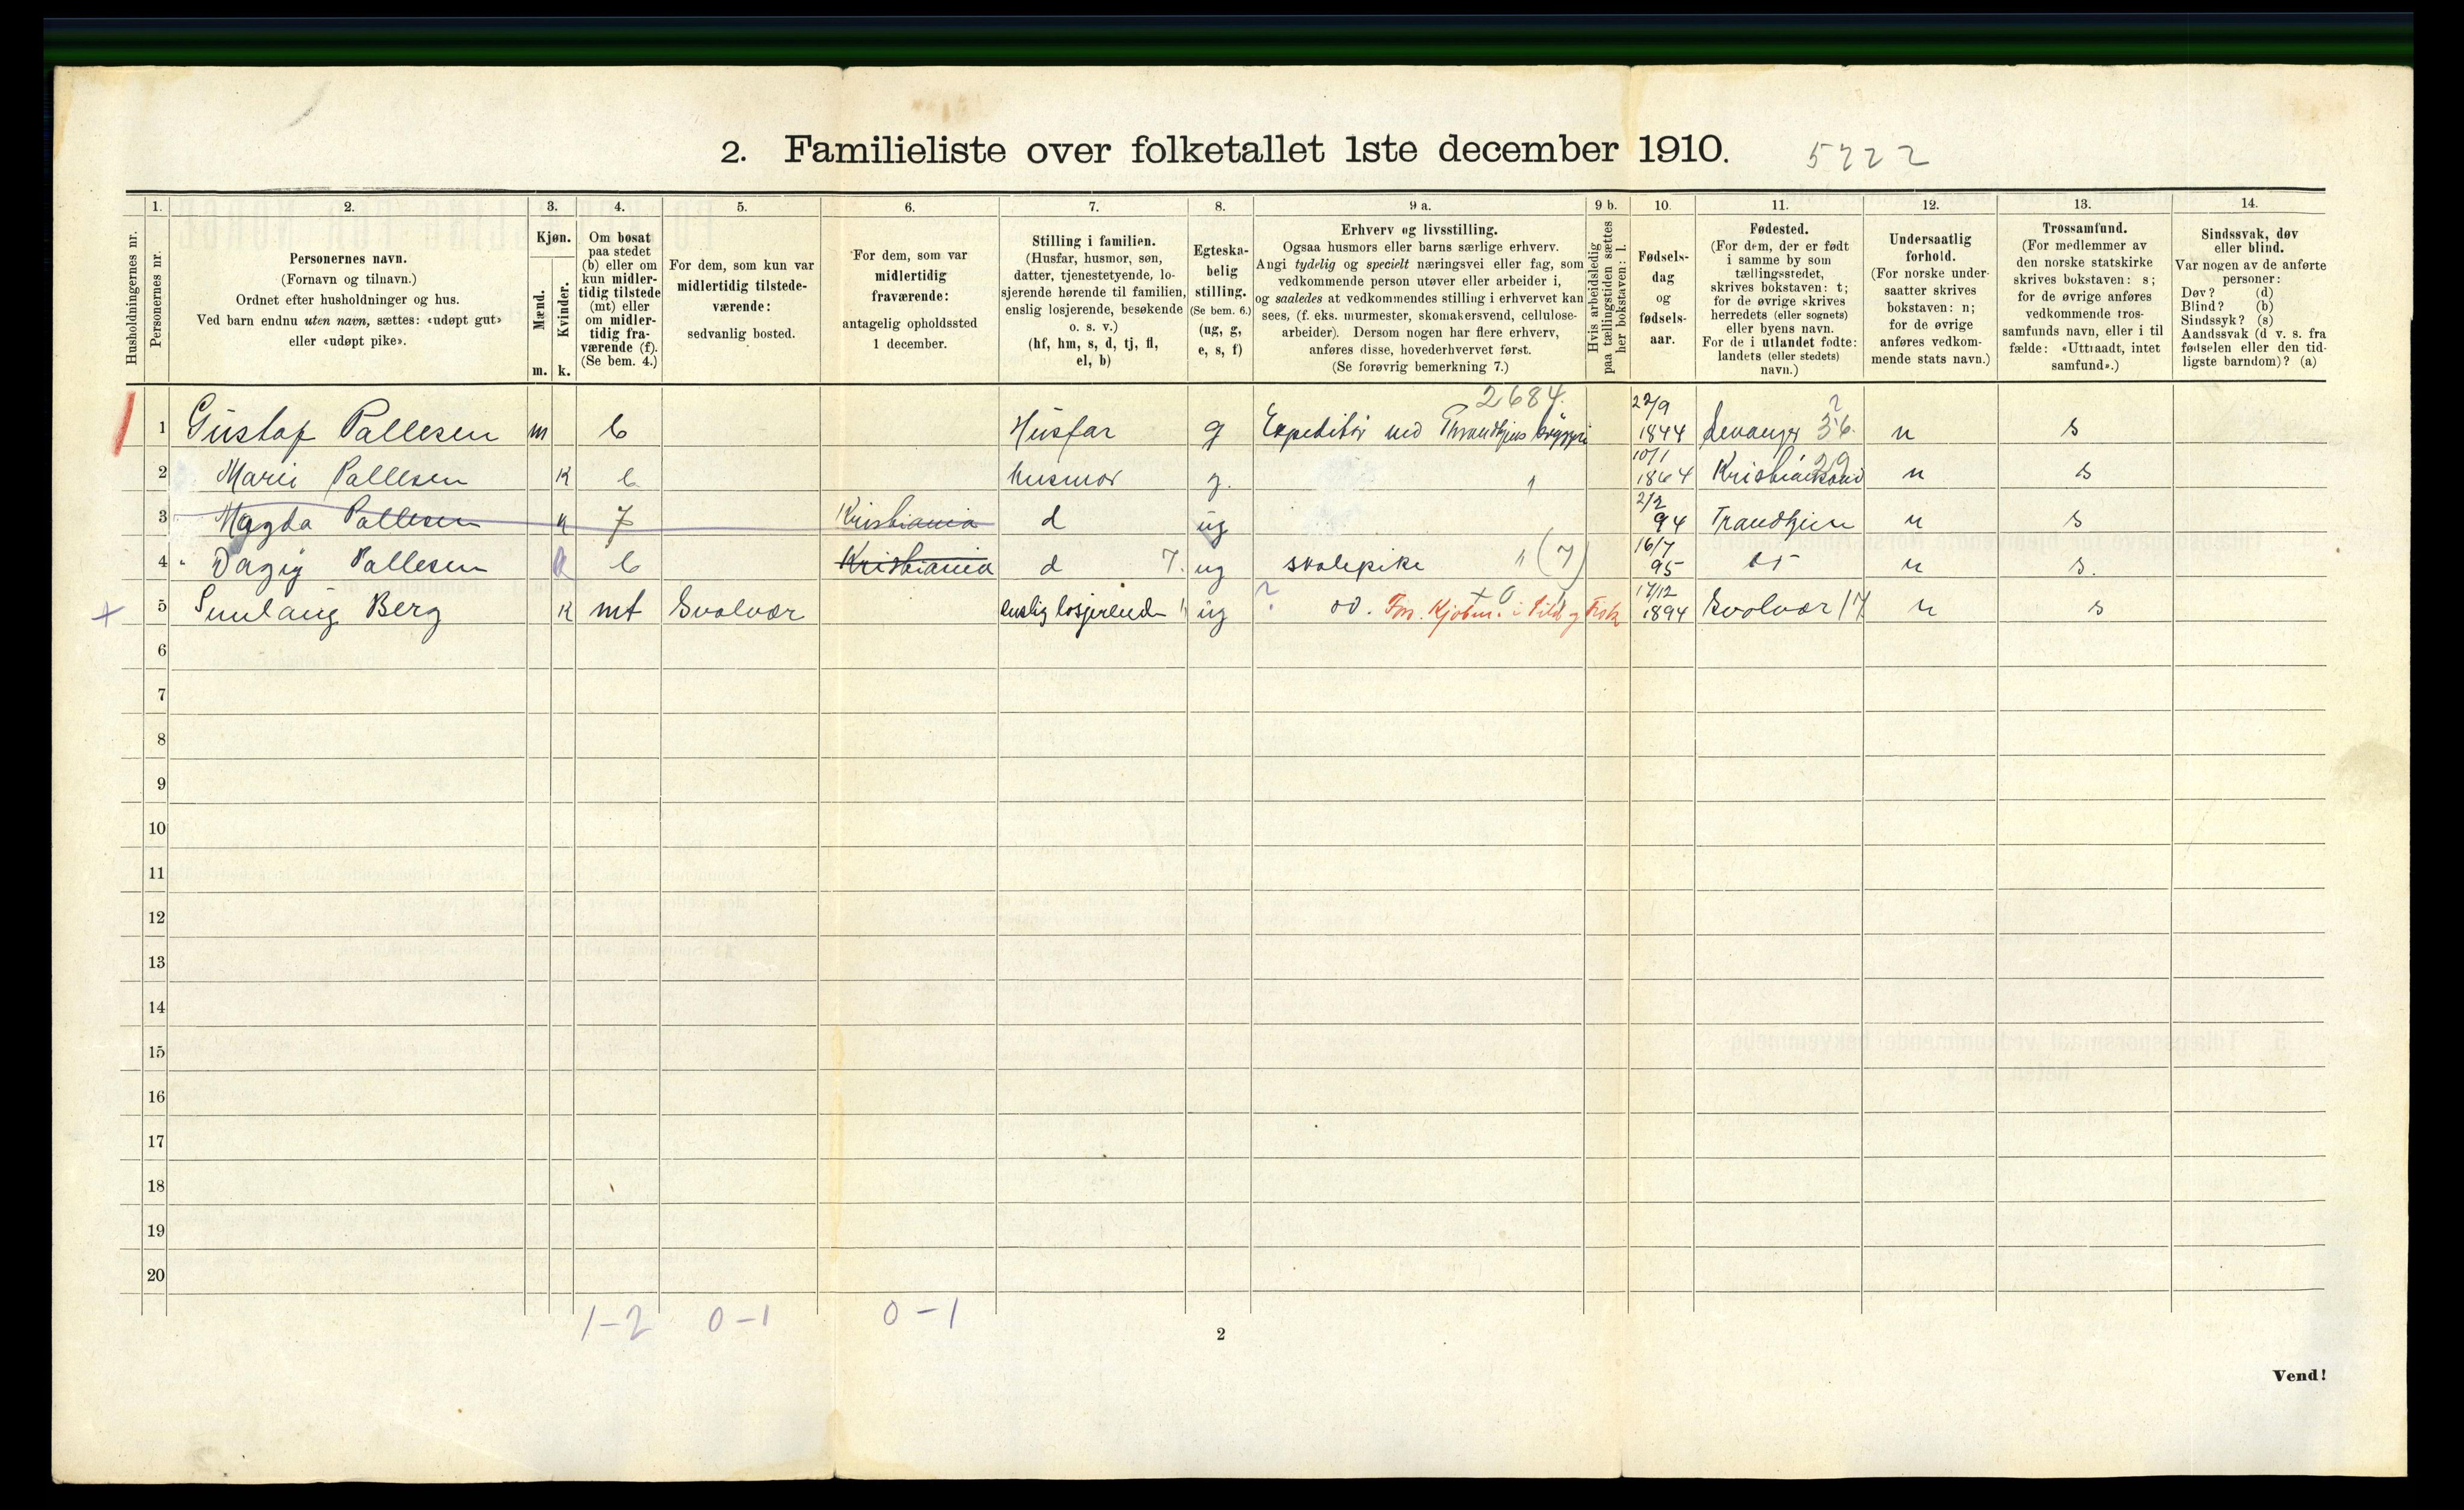 2. Familieliste over folketallet 1ste december 1910. 5222
1. 2. 3. 4. 5. 6. 7. 8. 9 a. 9 b. 10. 11. 12. 13. 14.
Husholdningernes nr.
Personernes nr.
Personernes navn.
(Fornavn og tilnavn.)
Ordnet efter husholdninger og hus.
Ved barn endnu uten navn, sættes: «udøpt gut»
eller «udøpt pike».
Kjøn.
Mænd.
Kvinder.
m. k.
Om bosat
paa stedet
(b) eller om
kun midler-
tidig tilstede
(mt) eller
om midler-
tidig fra-
værende (f).
(Se bem. 4.)
For dem, som kun var
midlertidig tilstede-
værende:
sedvanlig bosted.
For dem, som var
midlertidig
fraværende:
antagelig opholdssted
1 december.
Stilling i familien.
(Husfar, husmor, søn,
datter, tjenestetyende, lo-
sjerende hørende til familien,
enslig losjerende, besøkende
o. s. v.)
(hf, hm, s, d, tj, fl,
el, b)
Egteska-
belig
stilling.
(Se bem. 6.)
(ug, g,
e, s, f)
Erhverv og livsstilling.
Ogsaa husmors eller barns særlige erhverv.
Angi tydelig og specielt næringsvei eller fag, som
vedkommende person utøver eller arbeider i,
og saaledes at vedkommendes stilling i erhvervet kan
sees, (f. eks. murmester, skomakersvend, cellulose-
arbeider). Dersom nogen har flere erhverv,
anføres disse, hovederhvervet først.
(Se forøvrig bemerkning 7.)
Hvis arbeidsledig
paa tællingstiden sættes
her bokstaven: l.
Fødsels-
dag
og
fødsels-
aar.
Fødested.
(For dem, der er født
i samme by som
tællingsstedet,
skrives bokstaven: t;
for de øvrige skrives
herredets (eller sognets)
eller byens navn.
For de i utlandet fødte:
landets (eller stedets)
navn.)
Undersaatlig
forhold.
(For norske under-
saatter skrives
bokstaven: n;
for de øvrige
anføres vedkom-
mende stats navn.)
Trossamfund.
(For medlemmer av
den norske statskirke
skrives bokstaven: s;
for de øvrige anføres
vedkommende tros-
samfunds navn, eller i til
fælde: «Uttraadt, intet
samfund».)
Sindssvak, døv
eller blind.
Var nogen av de anførte
personer:
Døv? (d)
Blind? (b)
Sindssyk? (s)
Aandssvak (d v. s. fra
fødselen eller den tid-
ligste barndom)? (a)
2684.
1 Gustaf Pallesen m b Husfar g Expeditör ved Throndhjems bryggeri 22/9 1844 Levanger n s
2 Marie Pallesen K b husmor g. 10/1 1864 Kristiansund n s
3 Magda Pallesen K f Kristiania d ug 2/2 94 Trondhjem n s
4 Dagny Pallesen K b Kristiania d 7. ug skolepike (7) 16/7 95 n s.
5 Berg K mt Svolvær enslig losjerende ug ? 17/12 1894 Svolvær 17 n s
6
7
8
9
10
11
12
13
14
15
16
17
18
19
20
1-2 0-1 0-1
2
Vend!